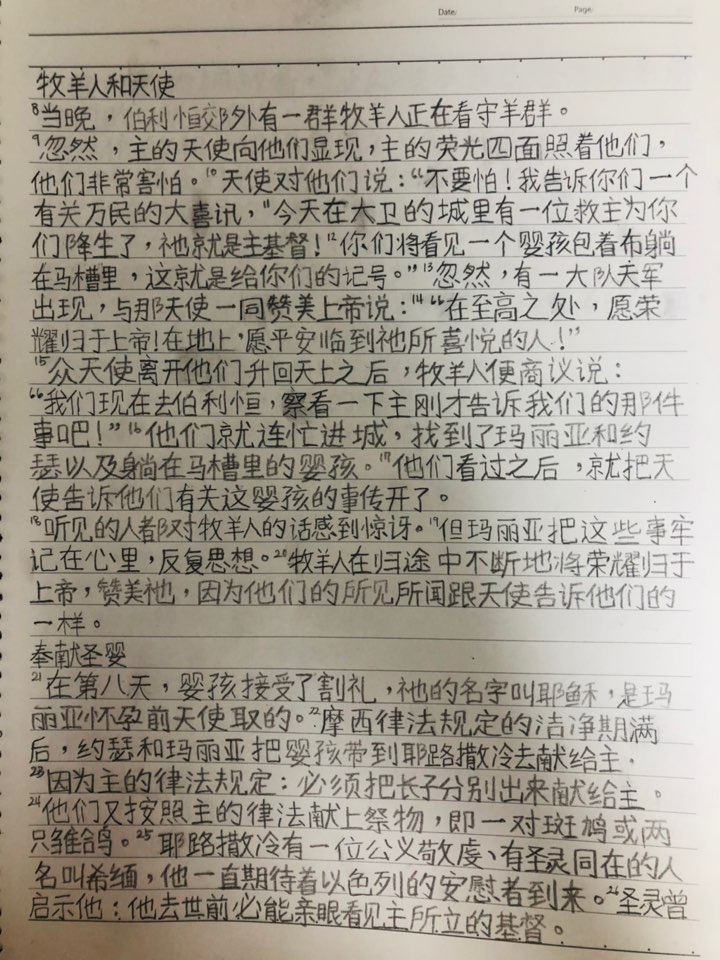 Date:
Page:
牧羊人和天使
⁸当晚，伯利恒郊外有一群牧羊人正在看守羊群。
⁹忽然，主的天使向他们显现，主的荣光四面照着他们，
他们非常害怕。¹⁰天使对他们说：“不要怕！我告诉你们一个
有关万民的大喜讯，¹¹今天在大卫的城里有一位救主为你
们降生了，祂就是主基督！¹²你们将看见一个婴孩包着布躺
在马槽里，这就是给你们的记号。”¹³忽然，有一大队天军
出现，与那天使一同赞美上帝说：¹⁴“在至高之处，愿荣
耀归于上帝！在地上，愿平安临到祂所喜悦的人！”
¹⁵众天使离开他们升回天上之后，牧羊人便商议说：
“我们现在去伯利恒，察看一下主刚才告诉我们的那件
事吧！”¹⁶他们就连忙进城，找到了玛丽亚和约
瑟以及躺在马槽里的婴孩。¹⁷他们看过之后，就把天
使告诉他们有关这婴孩的事传开了。
¹⁸听见的人都对牧羊人的话感到惊讶。¹⁹但玛丽亚把这些事牢
记在心里，反复思想。²⁰牧羊人在归途中不断地将荣耀归于
上帝，赞美祂，因为他们的所见所闻跟天使告诉他们的
一样。
奉献圣婴
²¹在第八天，婴孩接受了割礼，祂的名字叫耶稣，是玛
丽亚怀孕前天使取的。²²摩西律法规定的洁净期满
后，约瑟和玛丽亚把婴孩带到耶路撒冷去献给主．
²³因为主的律法规定：必须把长子分别出来献给主。
²⁴他们又按照主的律法献上祭物，即一对斑鸠或两
只雏鸽。²⁵耶路撒冷有一位公义敬虔、有圣灵同在的人
名叫希缅，他一直期待着以色列的安慰者到来。²⁶圣灵曾
启示他：他去世前必能亲眼看见主所立的基督。